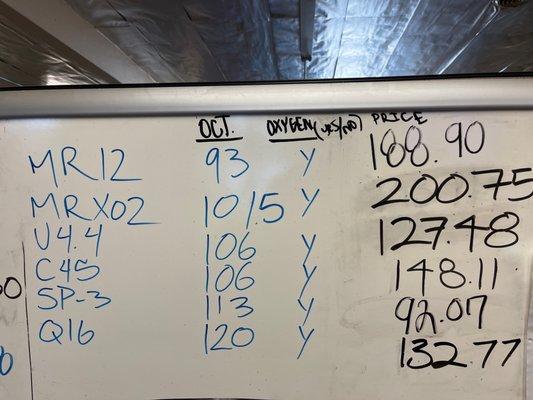 OCT. OXYGEN (YES/NO) PRICE
MR12 93 Y 188.90
MRX02 101.5 Y 200.75
U4.4 106 Y 127.48
C45 106 Y 148.11
SP-3 113 Y 92.07
Q16 120 Y 132.77